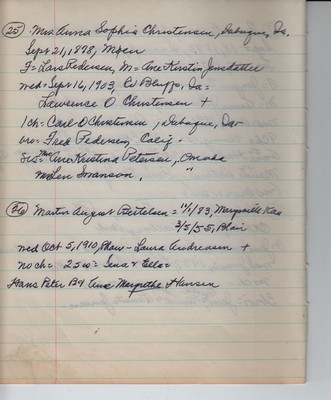 25) Mrs Anna Sophia Christensen, Dubuque, Ia.
Sept 21, 1898, Moen
F= Lars Pedersen, M= Ane Kirstin Jensdatter
wed= Sept 16, 1903, Co Bluffs, Ia=
Lawrence O Christensen +
1 ch= Carl O Christensen, Dubuque, Ia-
bro= Fred Pedersen, Calif.
Sis= Mrs Ane Kristina Petersen, Omaha
Mrs Len Swanson, "
26) Martin August Bertelsen = 11/1/83, Marysville Kas
3/5/55, Blair
wed Oct 5, 1910, Laura Andreasen +
no ch= 2 sis= Sena & Ella=
Hans Peter B & Ane Margrethe Hansen